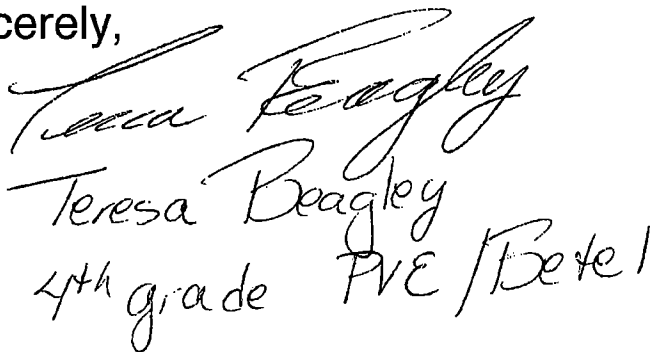 cerely,
Teresa Beagley
Teresa Beagley
4th grade PVE/Betel